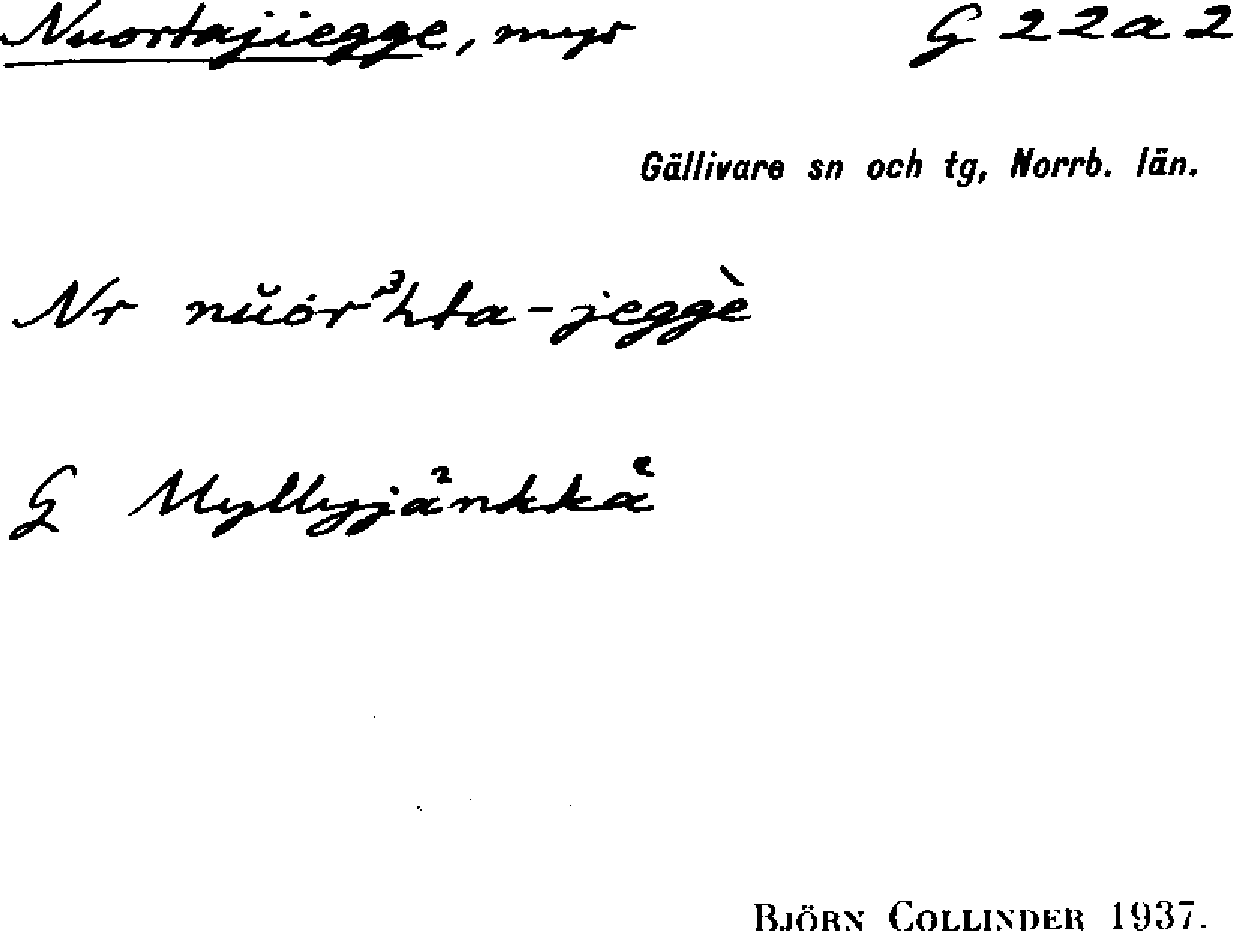 Nuortajiegge, myr G 22a2
Gällivare sn och tg, Norrb. län.
Nr nŭór³hta-jeggè
G Myllyjänkkä
BJÖRN COLLINDER 1937.